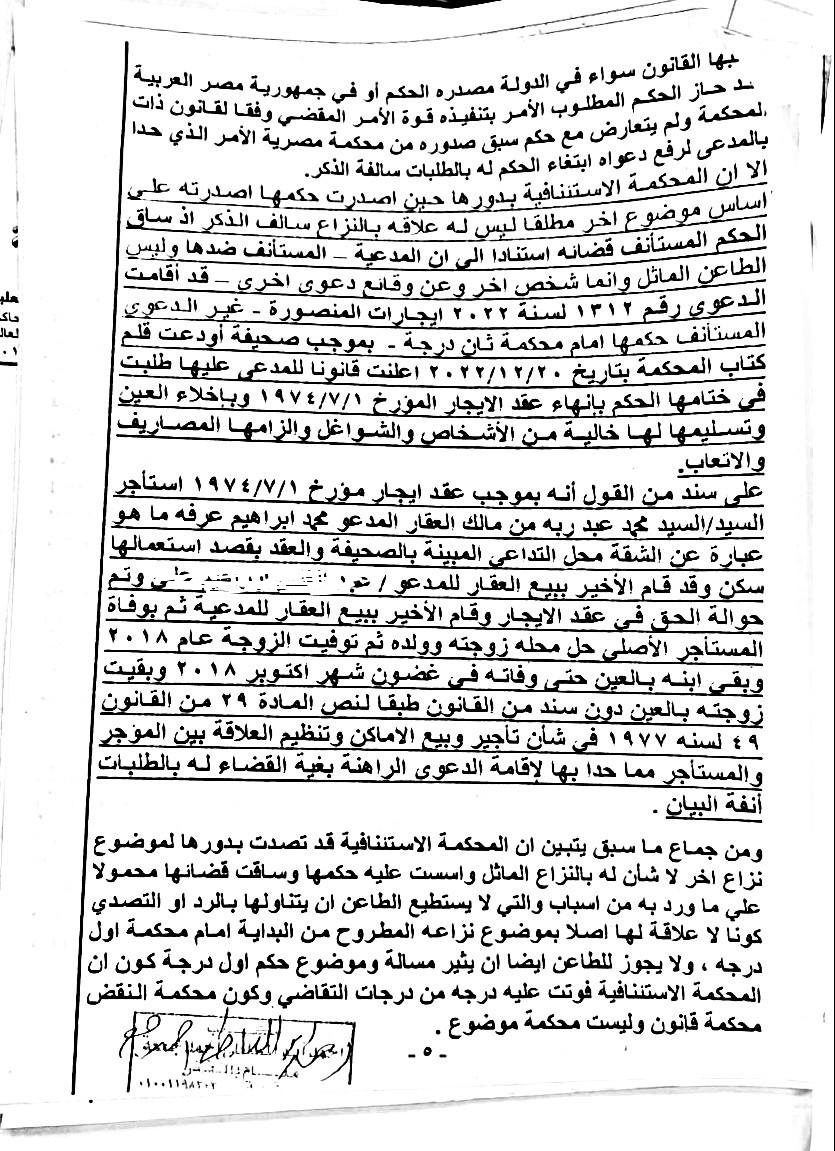 بها القانون سواء في الدولة مصدره الحكم أو في جمهورية مصر العربية
حاز الحكم المطلوب الأمر بتنفيذه قوة الأمر المقضي وفقا لقانون ذات
لمحكمة ولم يتعارض مع حكم سبق صدوره من محكمة مصرية الأمر الذي حدا
بالمدعى لرفع دعواه ابتغاء الحكم له بالطلبات سالفة الذكر.
الا ان المحكمة الاستئنافية بدورها حين اصدرت حكمها اصدرته علي
اساس موضوع اخر مطلقا ليس له علاقه بالنزاع سالف الذكر اذ ساق
الحكم المستأنف قضائه استنادا الى ان المدعية – المستأنف ضدها وليس
الطاعن الماثل وانما شخص اخر وعن وقائع دعوى اخرى – قد أقامت
الدعوى رقم ١٣١٢ لسنة ٢٠٢٢ ايجارات المنصورة - غير الدعوي
المستأنف حكمها امام محكمة ثان درجة - بموجب صحيفة أودعت قلم
كتاب المحكمة بتاريخ ٢٠٢٢/١٢/٢٠ اعلنت قانونا للمدعى عليها طلبت
في ختامها الحكم بإنهاء عقد الايجار المؤرخ ١٩٧٤/٧/١ وبإخلاء العين
وتسليمها لها خالية من الأشخاص والشواغل والزامها المصاريف
والاتعاب.
على سند من القول أنه بموجب عقد ايجار مؤرخ ١٩٧٤/٧/١ استأجر
السيد/السيد محمد عبد ربه من مالك العقار المدعو محمد ابراهيم عرفه ما هو
عبارة عن الشقة محل التداعي المبينة بالصحيفة والعقد بقصد استعمالها
سكن وقد قام الأخير ببيع العقار للمدعو / وتم
حوالة الحق في عقد الايجار وقام الأخير ببيع العقار للمدعية ثم بوفاة
المستأجر الأصلي حل محله زوجته وولده ثم توفيت الزوجة عام ٢٠١٨
وبقى ابنه بالعين حتى وفاته في غضون شهر اكتوبر ٢٠١٨ وبقيت
زوجته بالعين دون سند من القانون طبقا لنص المادة ٢٩ من القانون
٤٩ لسنه ١٩٧٧ في شأن تأجير وبيع الاماكن وتنظيم العلاقة بين المؤجر
والمستأجر مما حدا بها لإقامة الدعوى الراهنة بغية القضاء له بالطلبات
أنفة البيان .
ومن جماع ما سبق يتبين ان المحكمة الاستئنافية قد تصدت بدورها لموضوع
نزاع اخر لا شأن له بالنزاع الماثل واسست عليه حكمها وساقت قضائها محمولا
علي ما ورد به من اسباب والتي لا يستطيع الطاعن ان يتناولها بالرد او التصدي
كونا لا علاقة لها اصلا بموضوع نزاعه المطروح من البداية امام محكمة اول
درجه ، ولا يجوز للطاعن ايضا ان يثير مسالة وموضوع حكم اول درجة كون ان
المحكمة الاستئنافية فوتت عليه درجه من درجات التقاضي وكون محكمة النقض
محكمة قانون وليست محكمة موضوع .
- ٥ -